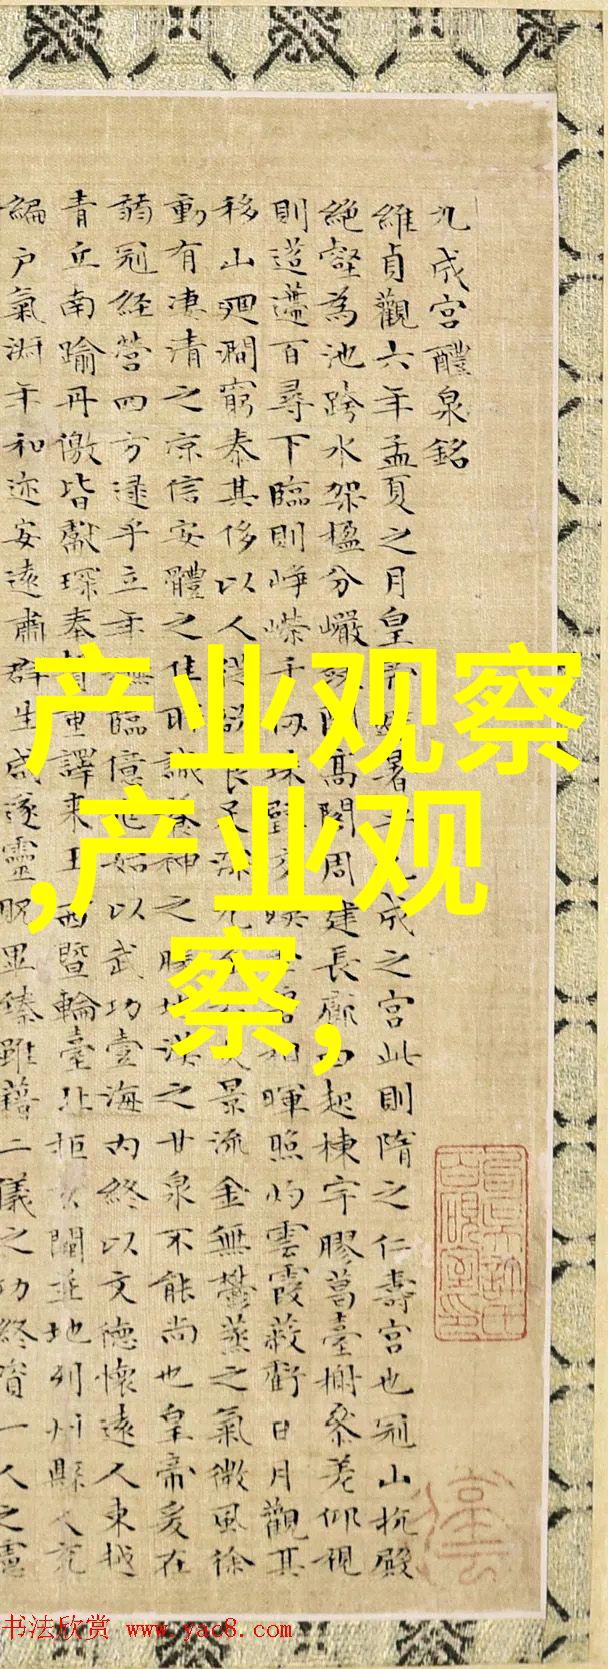 九成宮醴泉銘
維貞觀六年孟夏之月皇帝避暑乎九成之宮此則隋之仁壽宮也冠山抗殿
絕壑為池跨水架楹分巖竦闕高閣周建長廊四起棟宇膠葛臺榭參差仰視
則迢遰百尋下臨則崢嶸千仞珠璧交映金碧相暉照灼雲霞蔽虧日月觀其
移山迴澗窮泰其侈以人從欲良足深尤至於炎景流金無鬱蒸之氣微風徐
動有淒清之涼信安體之佳所誠養神之勝地漢之甘泉不能尚也皇帝爰在
弱冠經營四方逮乎立年撫臨億兆始以武功壹海內終以文德懷遠人東越
青丘南踰丹徼皆獻琛奉贄重譯來王西暨輪臺北拒玄闕並地列州縣人充
編戶氣淑年和迩安遠肅群生咸遂靈貺畢臻雖藉二儀之功終資一人之慮
产业观察
,产业观
察,
书法欣赏 www.yac8.com